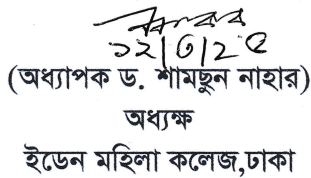 ১২/৩/২৫
(অধ্যাপক ড. শামছুন নাহার)
অধ্যক্ষ
ইডেন মহিলা কলেজ,ঢাকা